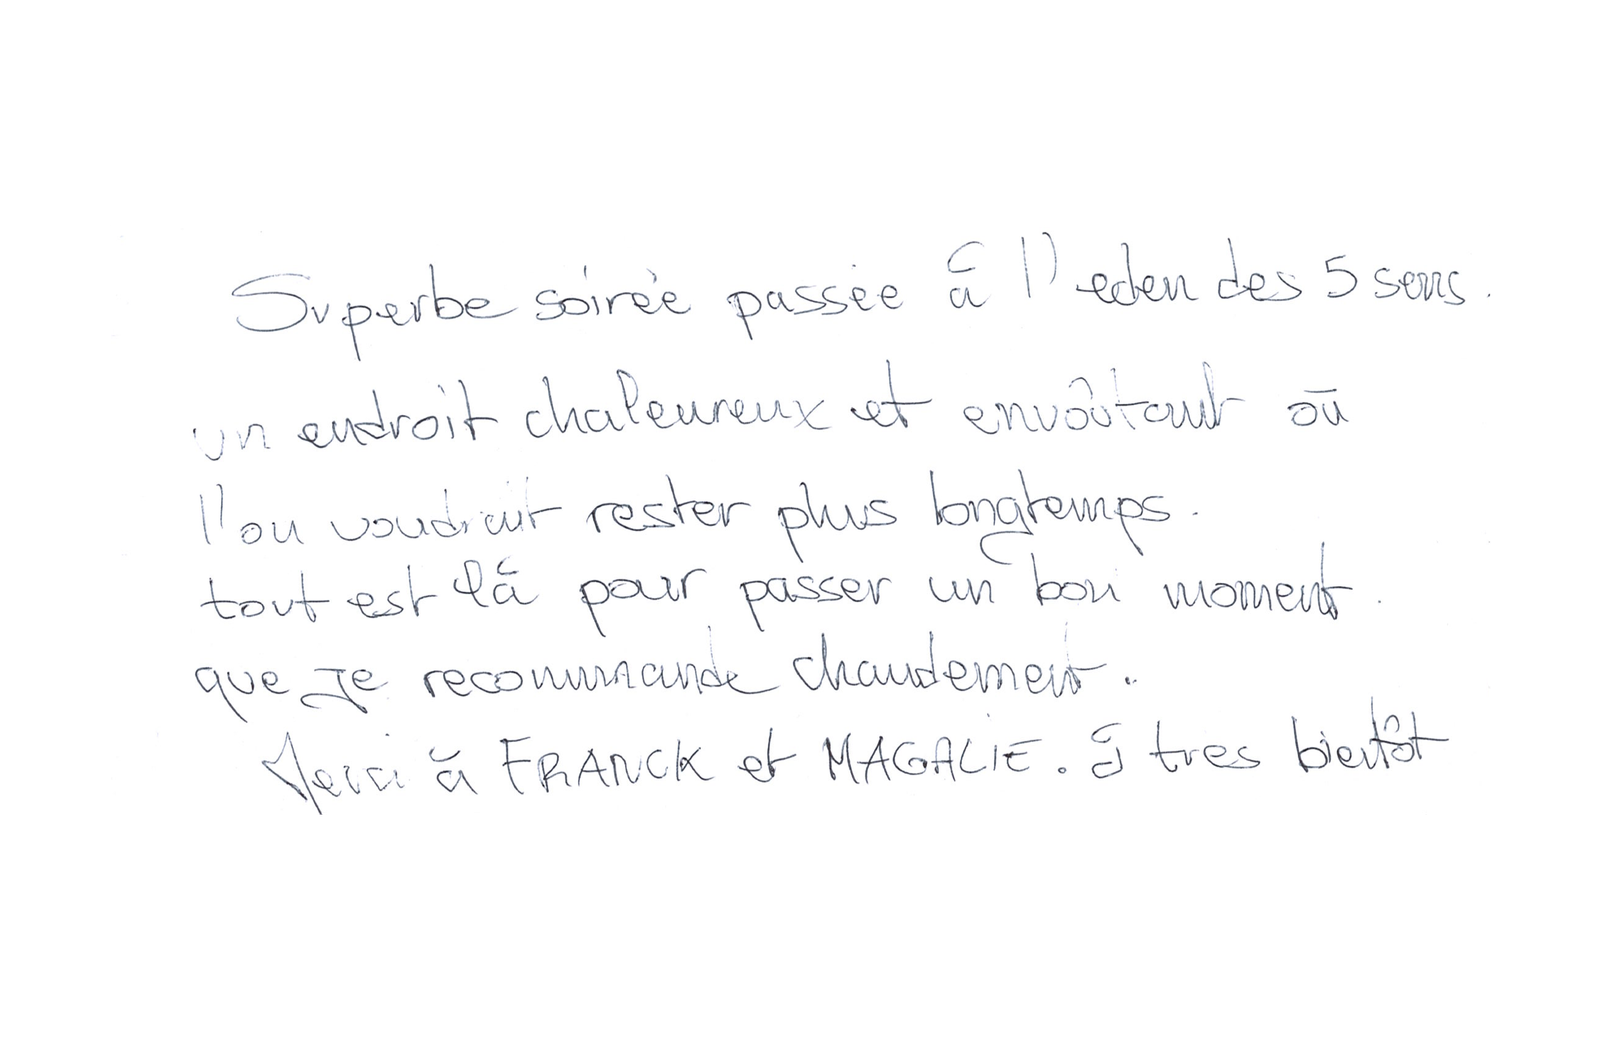 Superbe soirée passée à l'eden des 5 sens.
un endroit chaleureux et envoûtant où
l'on voudrait rester plus longtemps.
tout est là pour passer un bon moment.
que je recommande chaudement..
Merci à FRANCK et MAGALIE. à tres bientôt